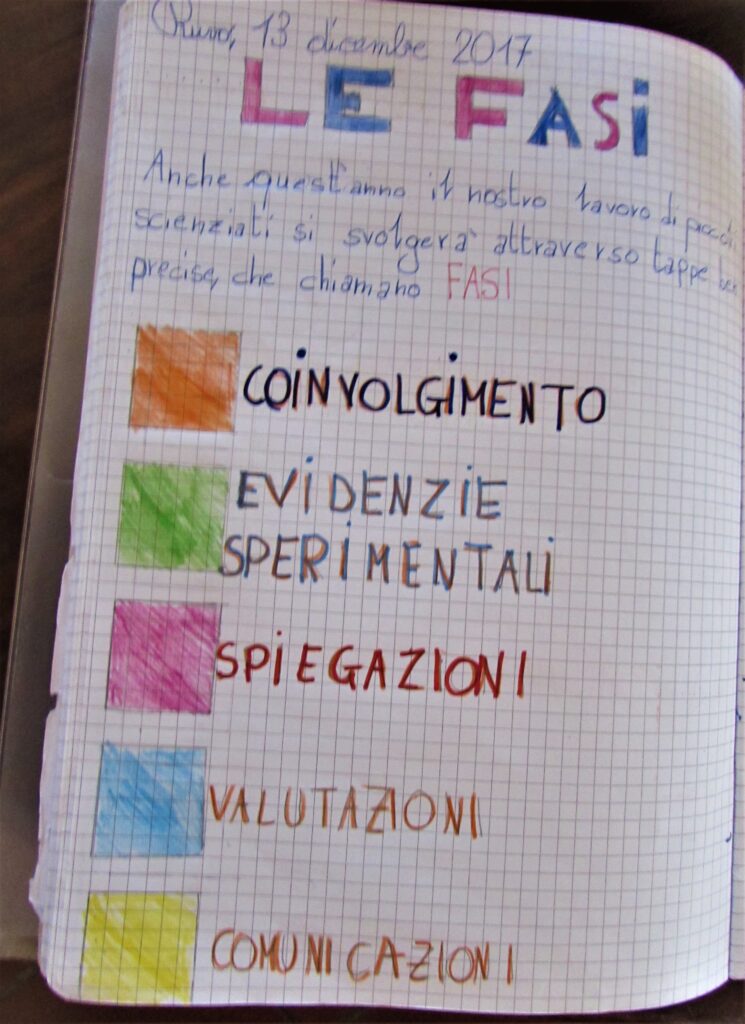 Ruvo, 13 dicembre 2017
LE FASi
Anche quest'anno il nostro lavoro di piccoli
scienziati si svolgerà attraverso tappe ben
precise, che chiamano FASI
COiNVOLGiMENTO
EViDENZiE
SPERiMENTALi
SPiEGAZIONI
VALUTAZIONI
COMUNICAZIONI